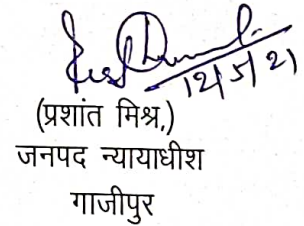 12/5/21
(प्रशांत मिश्र,)
जनपद न्यायाधीश
गाजीपुर